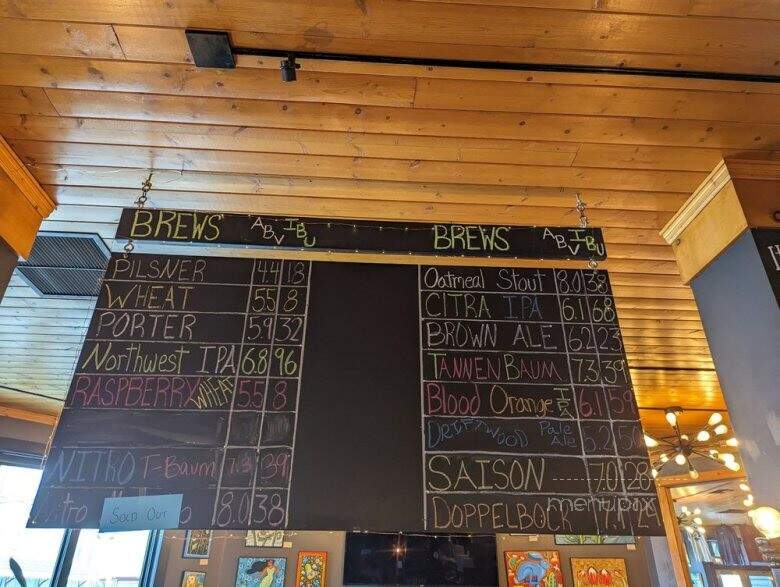 BREWS ABV IBU
PILSNER 4.4 18
WHEAT 5.5 8
PORTER 5.9 32
Northwest IPA 6.8 96
RASPBERRY WHEAT 5.5 8
NITRO T-Baum 7.3 39
Nitro 8.0 38
SOLD OUT
BREWS ABV IBU
Oatmeal Stout 8.0 38
CITRA IPA 6.1 68
BROWN ALE 6.2 23
TANNENBAUM 7.3 39
Blood Orange IPA 6.1 59
DRIFTWOOD Pale Ale 5.2
SAISON 7.0 28
DOPPELBOCK
menupix